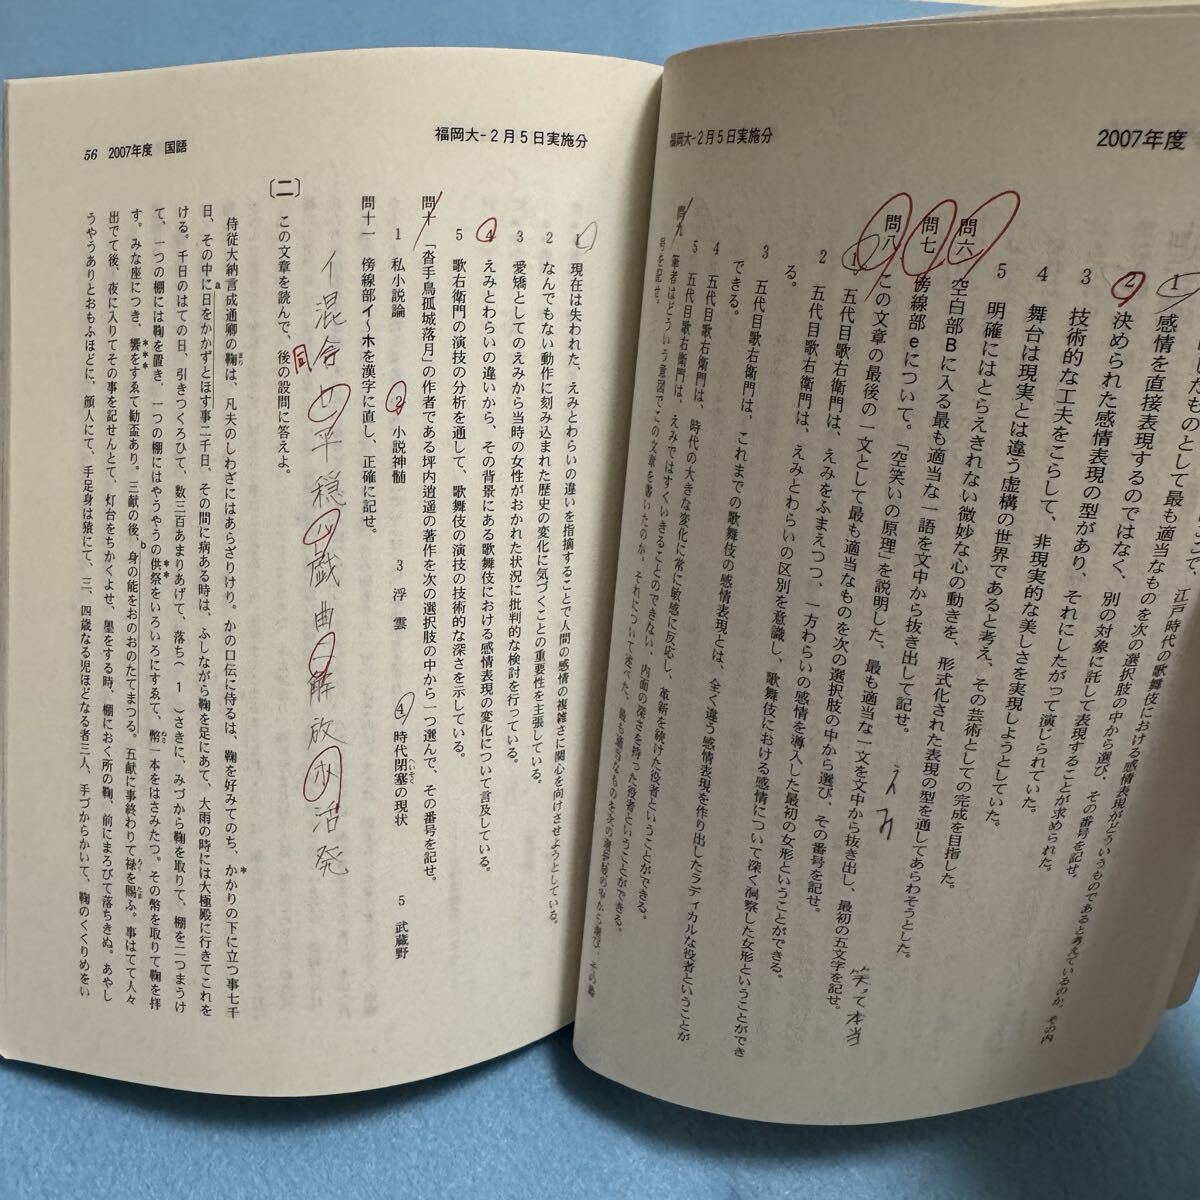 福岡大-2月5日実施分
2007年度
1 感情を直接表現するのではなく、別の対象に託して表現することが求められた。
2 決められた感情表現の型があり、それにしたがって演じられていた。
3 技術的な工夫をこらして、非現実的な美しさを実現しようとしていた。
4 舞台は現実とは違う虚構の世界であると考え、その芸術としての完成を目指した。
5 明確にはとらえきれない微妙な心の動きを、形式化された表現の型を通してあらわそうとした。
問六 空白部Bに入る最も適当な一語を文中から抜き出して記せ。
えみ
問七 傍線部eについて。「空笑いの原理」を説明した、最も適当な一文を文中から抜き出し、最初の五文字を記せ。
笑って本当
問八 この文章の最後の一文として最も適当なものを次の選択肢の中から選び、その番号を記せ。
1 五代目歌右衛門は、えみをふまえつつ、一方わらいの感情を導入した最初の女形ということができる。
2 五代目歌右衛門は、えみとわらいの区別を意識し、歌舞伎における感情について深く洞察した女形ということができる。
3 五代目歌右衛門は、これまでの歌舞伎の感情表現とは、全く違う感情表現を作り出したラディカルな役者ということができる。
4 五代目歌右衛門は、時代の大きな変化に常に敏感に反応し、革新を続けた役者ということができる。
5 五代目歌右衛門は、えみではすくいきることのできない、内面の深さを持った役者ということができる。
問九 筆者はどういう意図でこの文章を書いたのか。それについて述べた、最も適当なものを次の選択肢の中から選び、その番号を記せ。
56 2007年度 国語
福岡大-2月5日実施分
1 現在は失われた、えみとわらいの違いを指摘することで人間の感情の複雑さに関心を向けさせようとしている。
2 なんでもない動作に刻み込まれた歴史の変化に気づくことの重要性を主張している。
3 愛矯としてのえみから当時の女性がおかれた状況に批判的な検討を行っている。
4 えみとわらいの違いから、その背景にある歌舞伎における感情表現の変化について言及している。
5 歌右衛門の演技の分析を通して、歌舞伎の演技の技術的な深さを示している。
問十 「沓手鳥孤城落月」の作者である坪内逍遥の著作を次の選択肢の中から一つ選んで、その番号を記せ。
1 私小説論 2 小説神髄 3 浮雲 4 時代閉塞の現状 5 武蔵野
問十一 傍線部イ~ホを漢字に直し、正確に記せ。
イ 混合 ロ 平穏 ハ 戯曲 ニ 解放 ホ 活発
同
〔二〕 この文章を読んで、後の設問に答えよ。
侍従大納言成通卿の鞠は、凡夫のしわざにはあらざりけり。かの口伝に侍るは、鞠を好みてのち、かかりの下に立つ事七千
日、その中に日をかかずとほす事二千日、その間に病ある時は、ふしながら鞠を足にあて、大雨の時には大極殿に行きてこれを
ける。千日のはての日、引きつくろひて、数三百あまりあげて、落ち( 1 )さきに、みづから鞠を取りて、棚を二つまうけ
て、一つの棚には鞠を置き、一つの棚にはやうやうの供祭をいろいろにすゑて、幣一本をはさみたつ。その幣を取りて鞠を拝
す。みな座につき、饗をすゑて勧盃あり。三献の後、身の能をおのおのたてまつる。五献に事終わりて禄を賜ふ。事はてて人々
出でて後、夜に入りてその事を記せんとて、灯台をちかくよせ、墨をする時、棚におく所の鞠、前にまろびて落ちきぬ。あやし
うやうありとおもふほどに、顔人にて、手足身は猿にて、三、四歳なる児ほどなる者三人、手づからかいて、鞠のくくりめをい